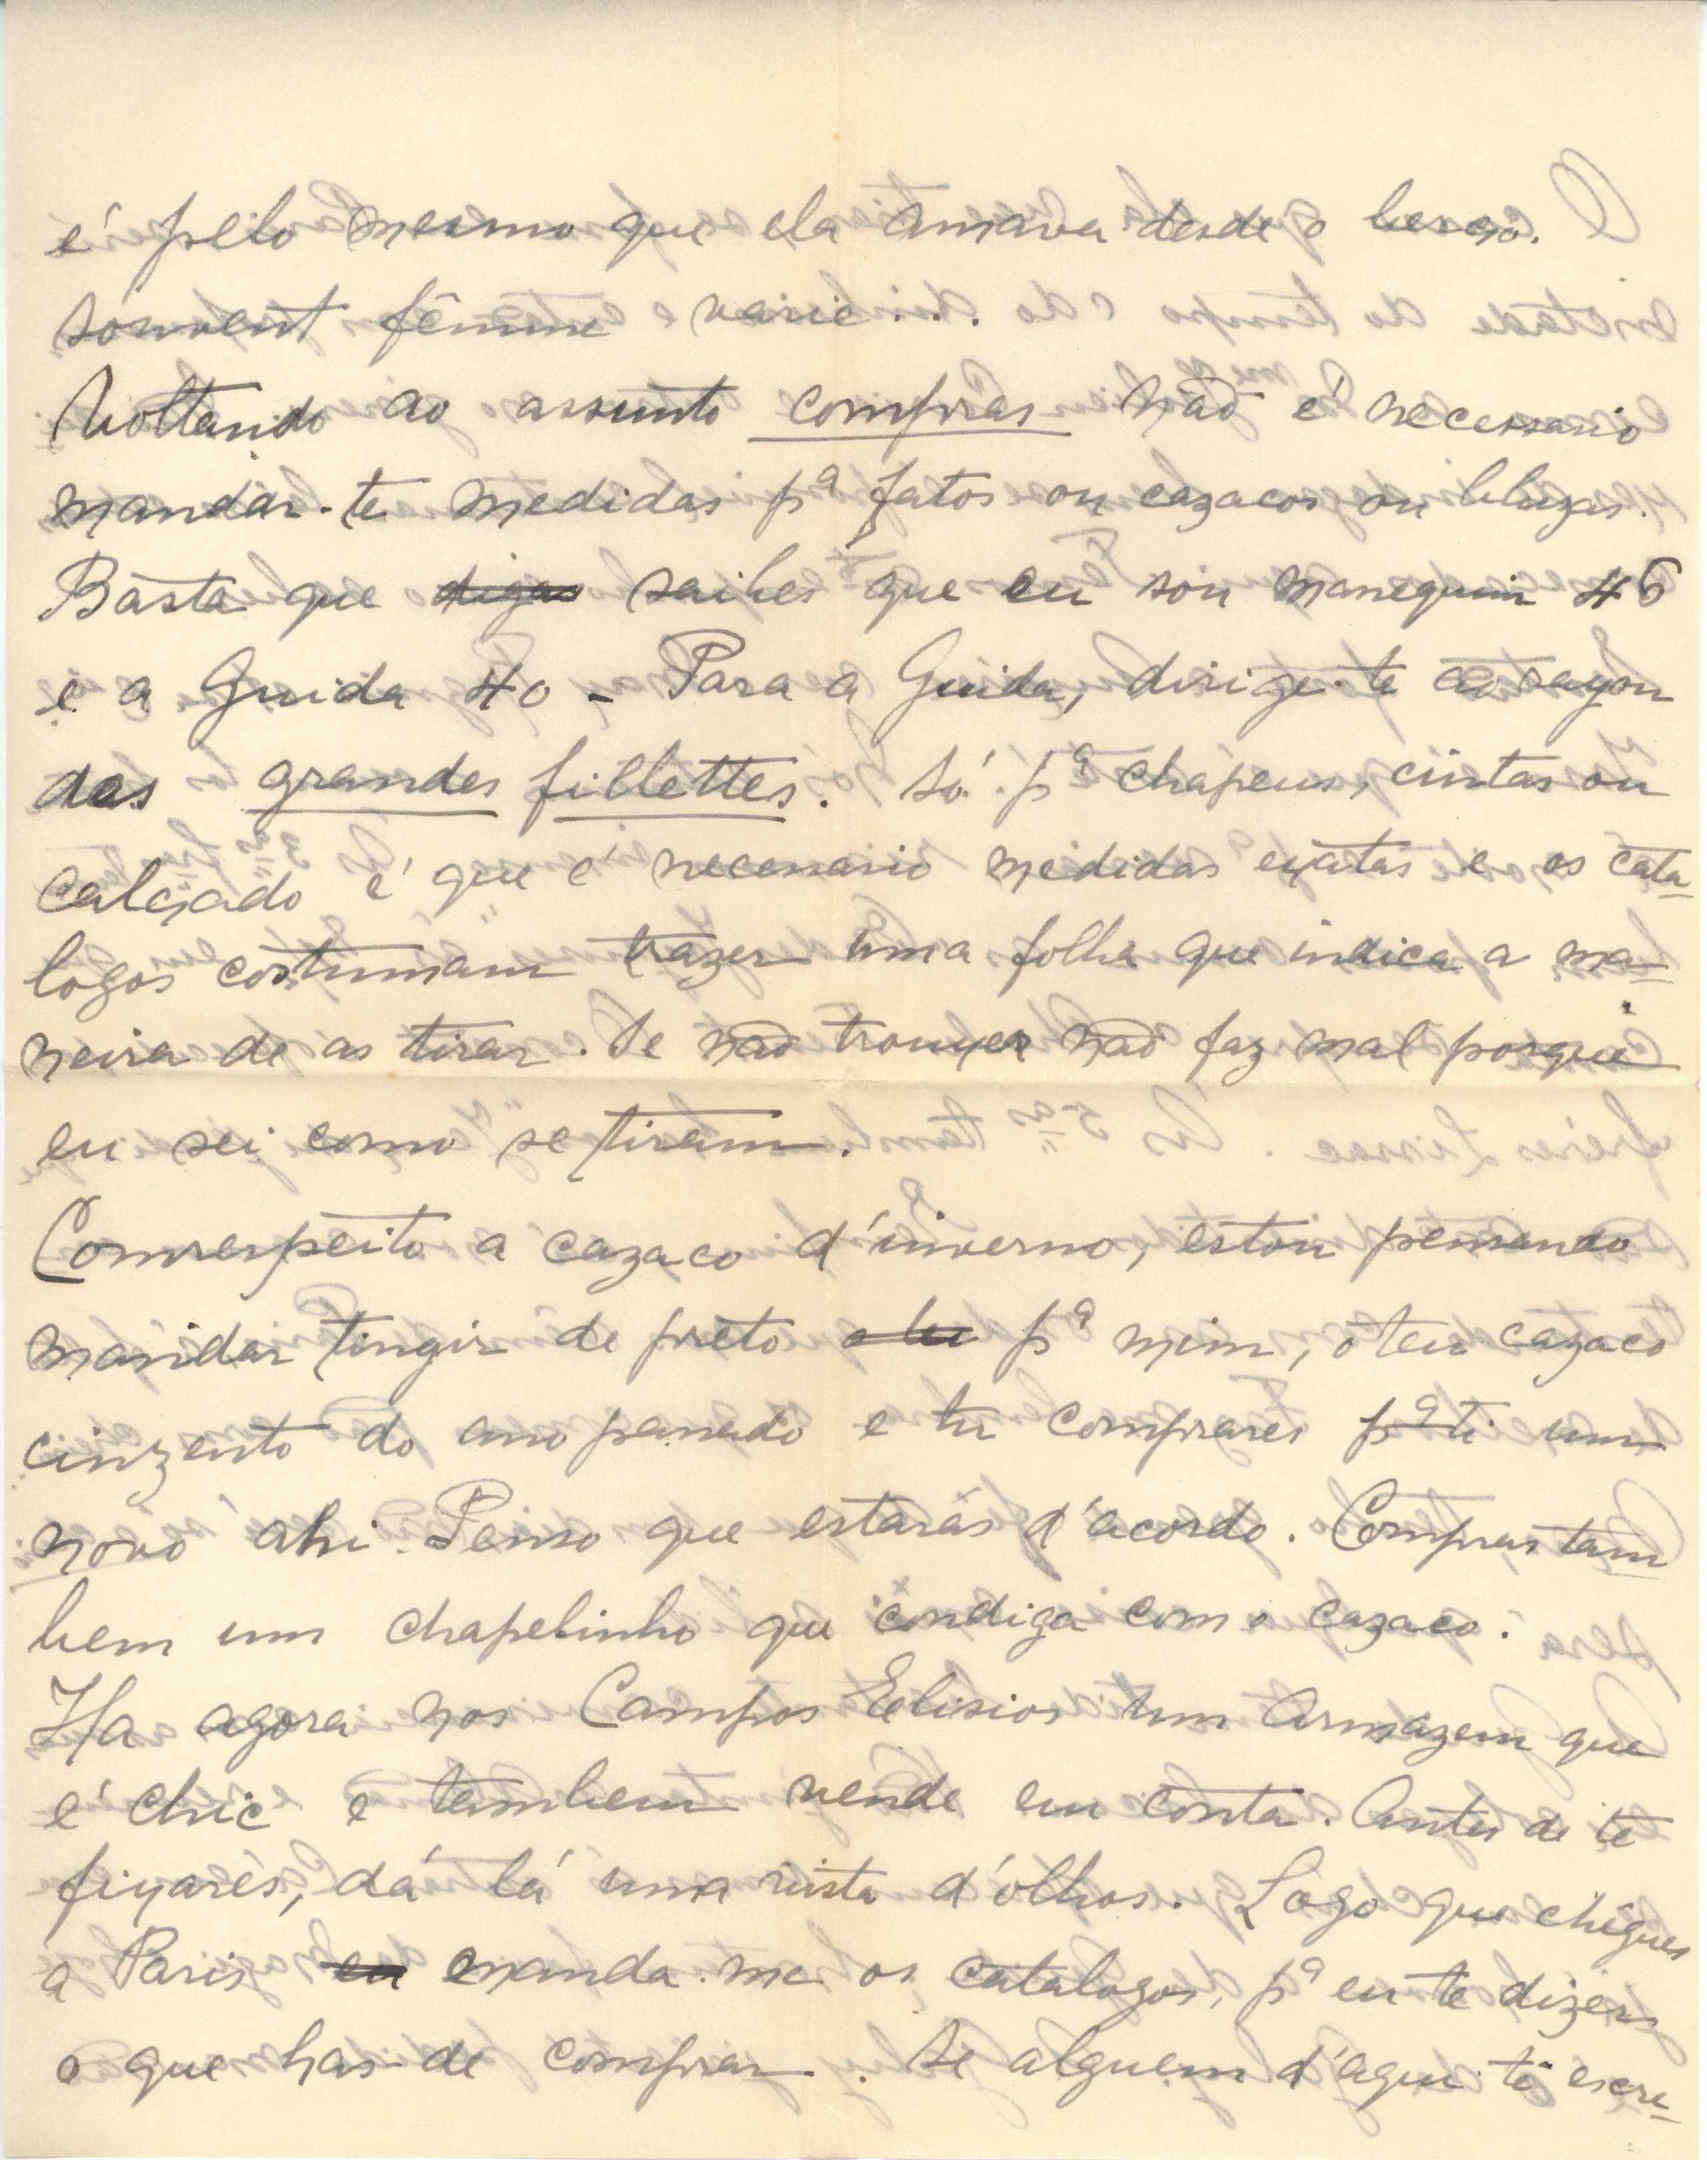 é pelo mesmo que ela amava desde o berço.
souvent fêmme varie...
Voltando ao assunto compras não é necessario
mandar-te medidas pª fatos ou cazacos ou bluzas.
Basta que digas saibes que eu sou manequim 46
e a Guida 40 - Para a Guida, dirige-te ao rayon
das grandes fillettes. Só pª chapeus, cintas ou
calçado é que é necessario medidas exatas e os cata-
logos costumam trazer uma folha que indica a ma-
neira de as tirar. Se não trouxer não faz mal porque
eu sei como se tiram.
Com respeito a cazaco d'inverno, estou pensando
mandar tingir de preto o teu pª mim, o teu cazaco
cinzento do ano passado e tu comprares pª ti um
novo ahi. Penso que estarás d'acordo. Compras tam
bem um chapelinho que condiga com o cazaco.
Ha agora nos Campos Elisios um Armazem que
é chic e tambem vende em conta. Antes de te
fixarés, dá lá uma vista d'olhos. Logo que chêgues
a Paris eu manda-me os catalogos, pª eu te dizer
o que has-de comprar. Se alguem d'aqui te escre-